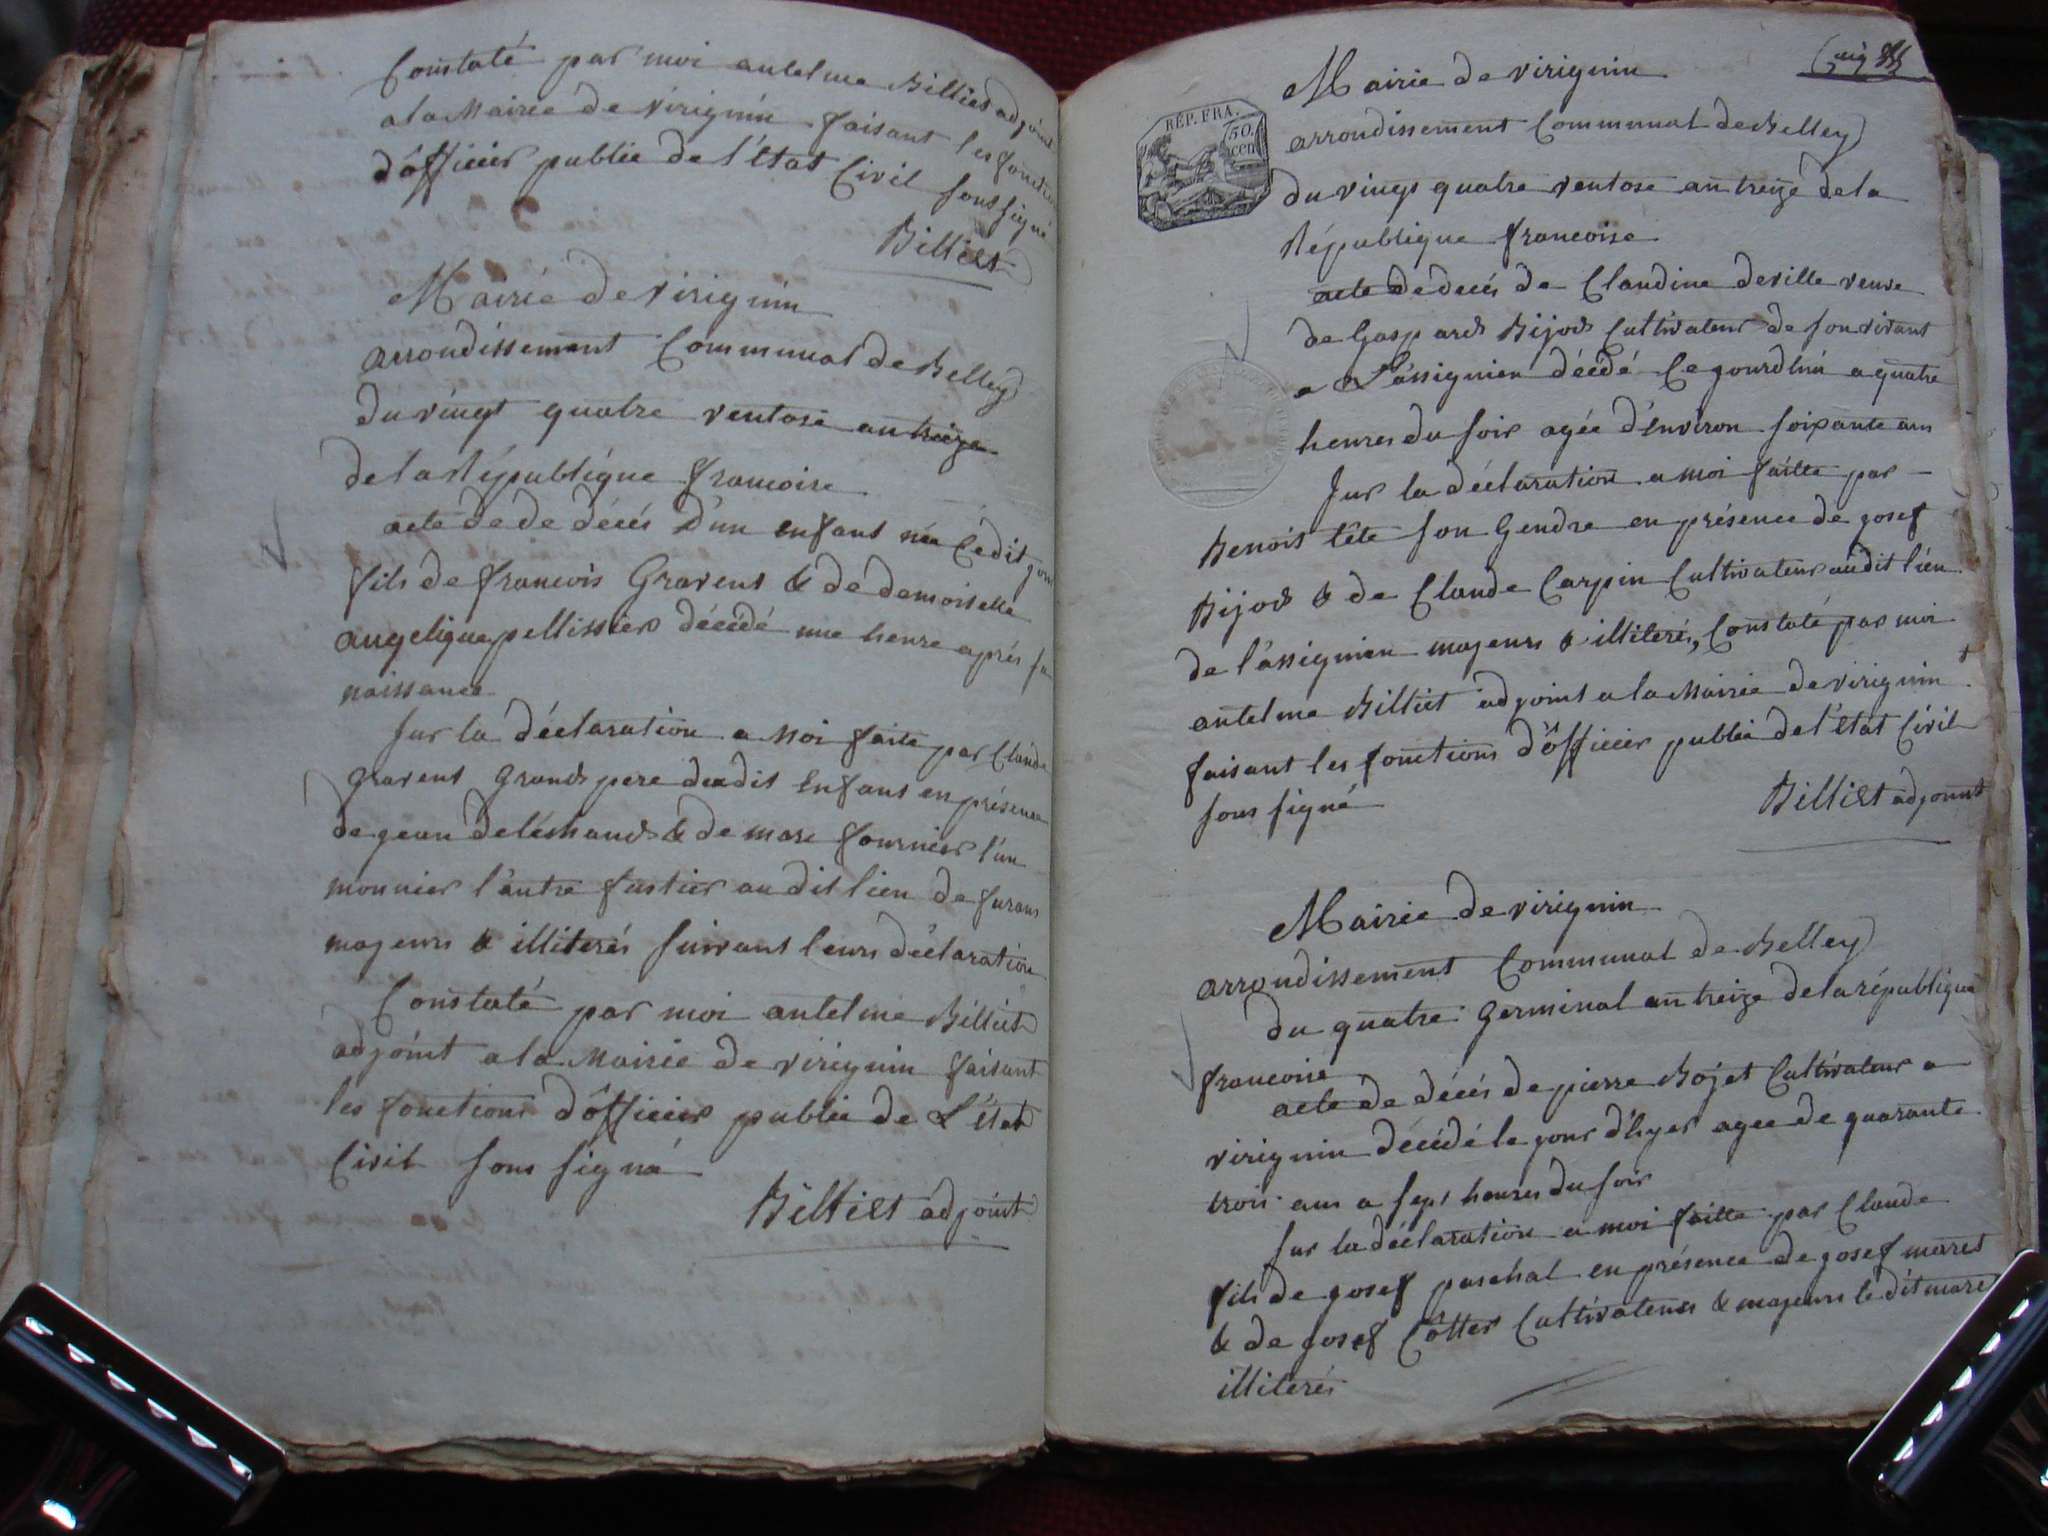 Constaté par moi antelme Billiet adjoint
a la Mairie de virignin faisant les fonction
d'officier public de l'état Civil sous signé
Billiet
Mairie de virignin
arrondissement Communal de Belley
du vingt quatre ventose an treize
de la République francoise
acte de de décés d'un enfant née Cédit jour
fils de francois Gravent & de demoiselle
angelique pellissier décédé une heure aprés sa
naissance
Sur la déclaration a Moi faite par Claude
gravent grand pere dudit Enfant en présence
de jean & de marc fournier l'un
monnier l'autre fustier audit lieu de furans
majeurs & illiterés suivant leurs déclaration
Constaté par moi antelme Billiet
adjoint a la Mairie de virignin faisant
les fonctions d'officier public de L'état
Civil sous signé
Billiet adjoint
RÉP. FRA.
50.
cen
Mairie de virignin
arrondissement Communal de Belley
du vingt quatre ventose an treize de la
République francoise
acte de decés de Claudine deville veuve
de Gaspard Bijod Cultivateur de son vivant
a L'assignieu décédé Ce jourd'hui a quatre
heures du soir agée d'Environ soixante ans
Sur la déclaration a moi faitte par
Benoit tête son Gendre en présence de josef
Bijod & de Claude Carpin Cultivateur audit lieu
de l'assignieu majeurs & illiterés, Constaté par moi
antelme Billiet adjoint a la Mairie de virignin
faisant les fonctions d'officier public de l'état Civil
sous signé
Billiet adjoint
Mairie de virignin
arrondissement Communal de Belley
du quatre Germinal an treize de la république
francoise
acte de décés de pierre Bojet Cultivateur a
virignin décédé le jour d'hyer agee de quarante
trois ans a sept heures du soir
Sur la déclaration a moi faitte par Claude
fils de josef paschal en présence de josef maret
& de josef Côttet Cultivateurs & majeurs le dit maret
illiterés